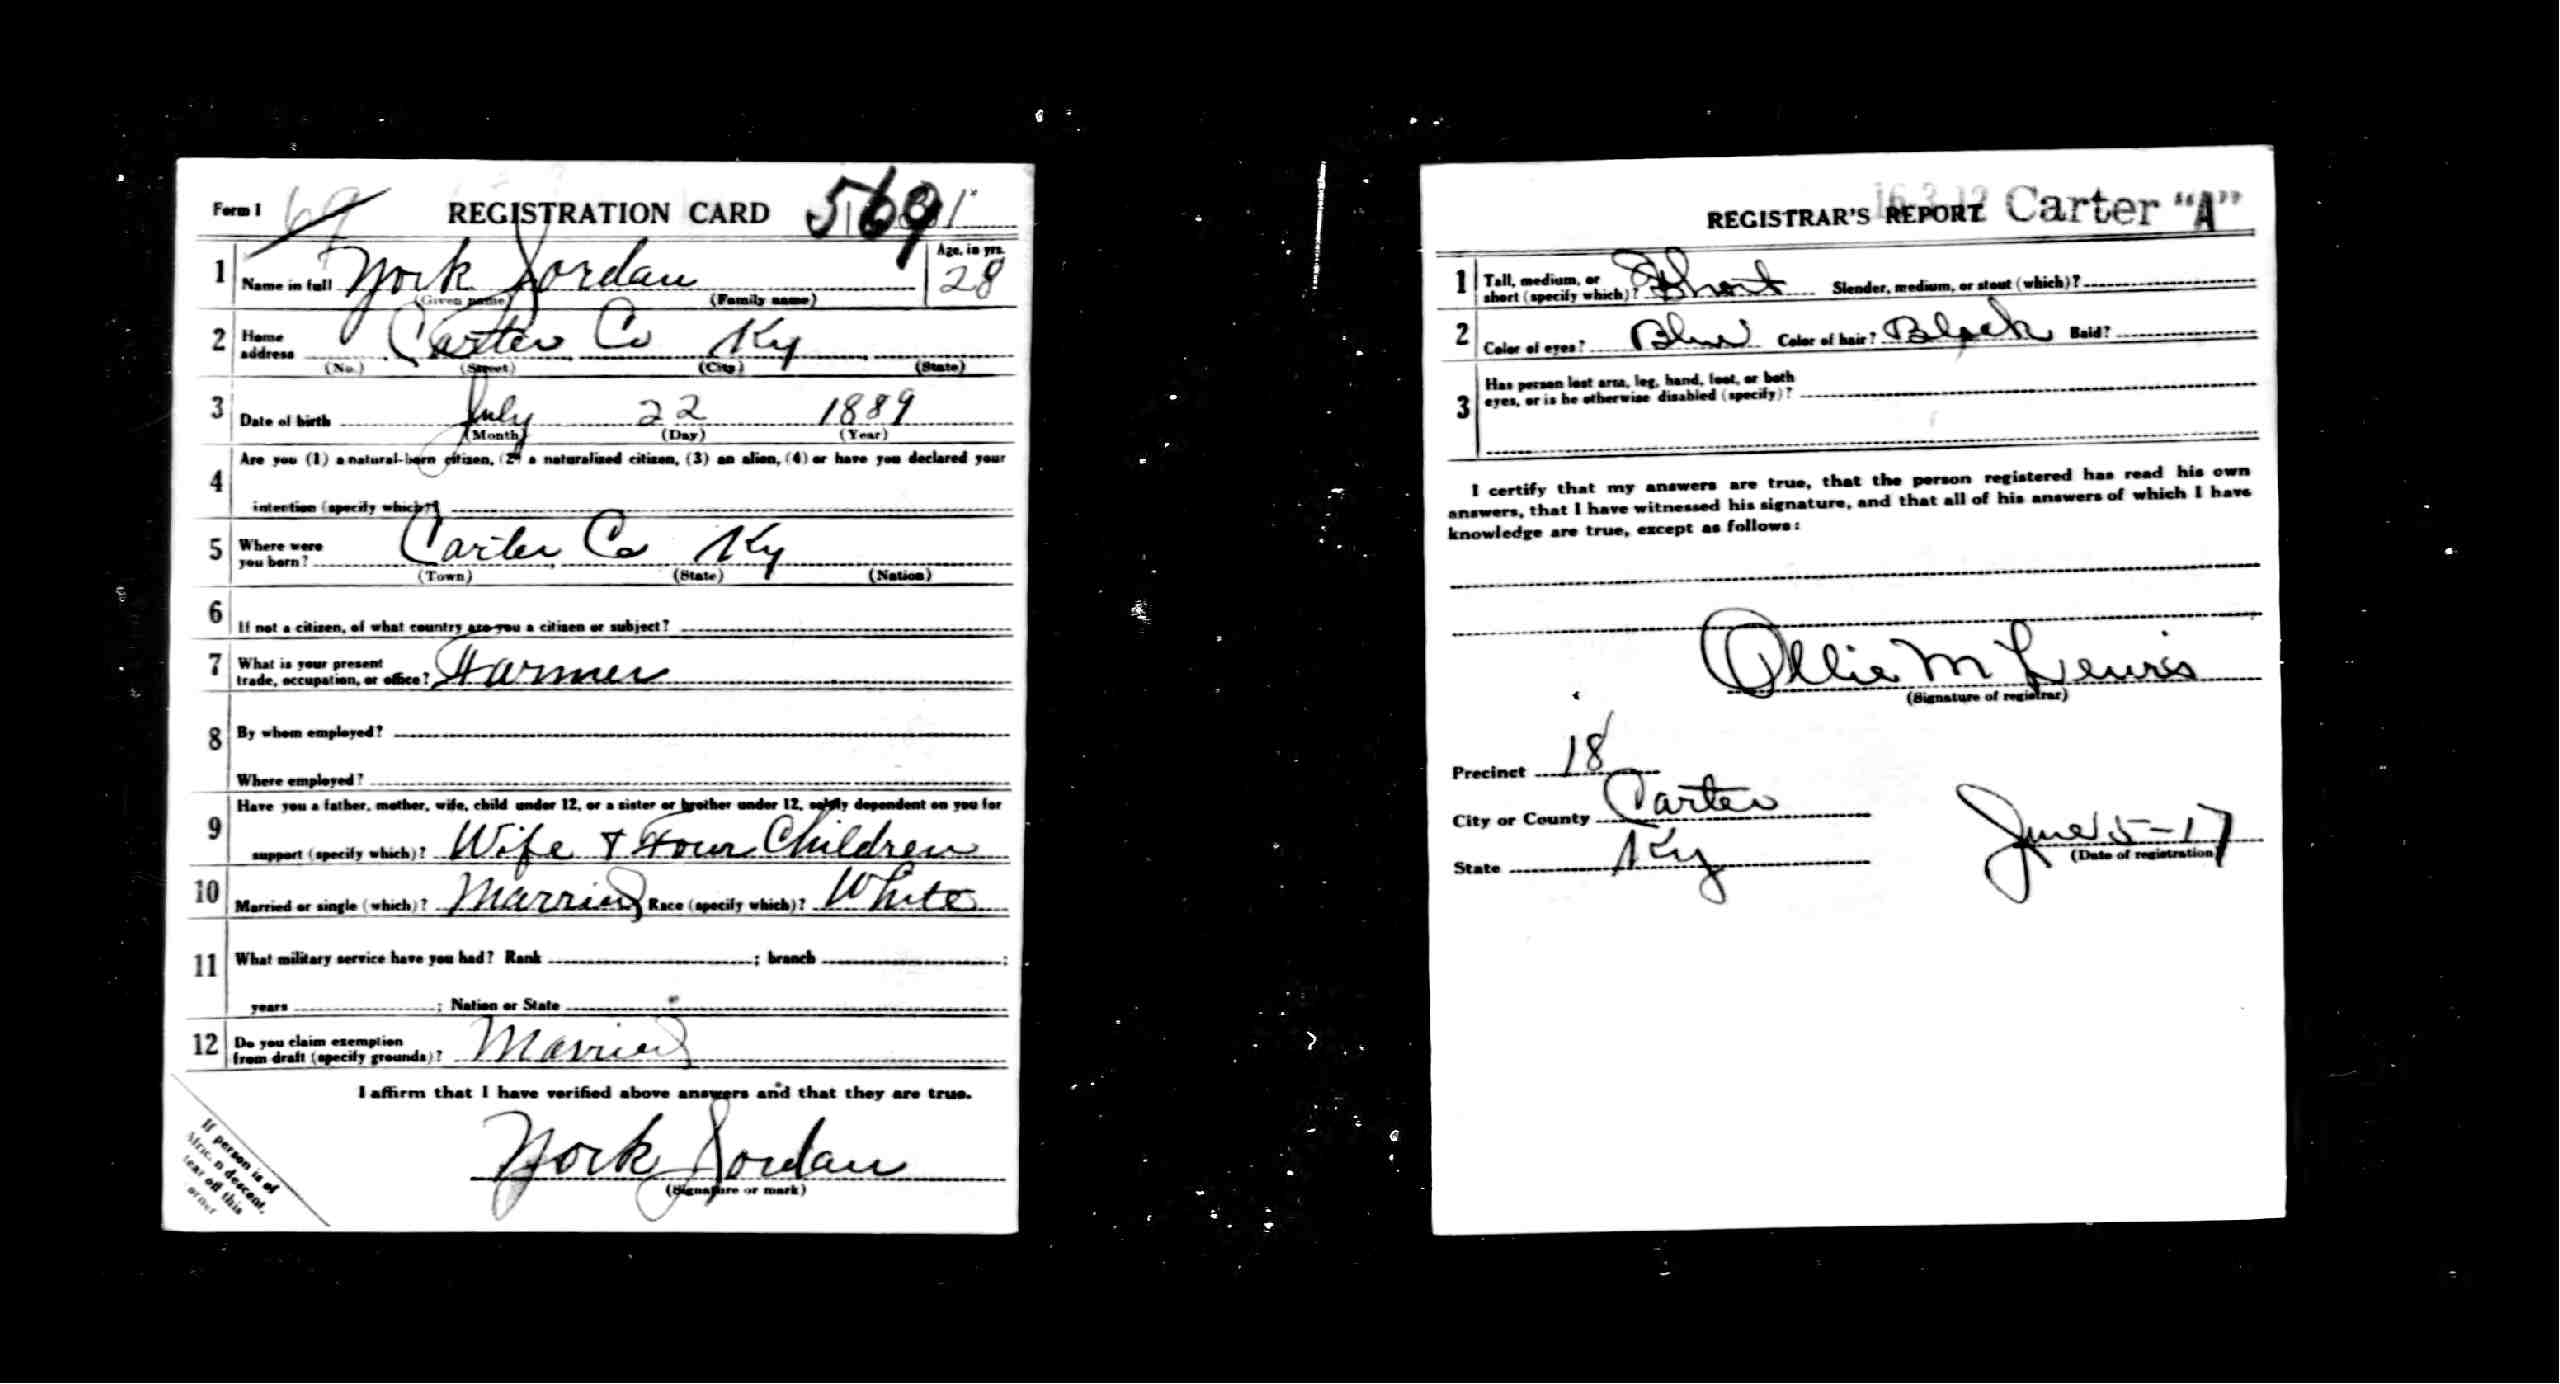 Form 1 69 REGISTRATION CARD 569
1 Name in full York Jordan Age, in yrs. 28
(Given name) (Family name)
2 Home address Carter Co Ky
(No.) (Street) (City) (State)
3 Date of birth July 22 1889
(Month) (Day) (Year)
4 Are you (1) a natural-born citizen, (2) a naturalized citizen, (3) an alien, (4) or have you declared your
intention (specify which)?
5 Where were you born? Carter Co Ky
(Town) (State) (Nation)
6 If not a citizen, of what country are you a citizen or subject?
7 What is your present
trade, occupation, or office? Farmer
8 By whom employed?
Where employed?
9 Have you a father, mother, wife, child under 12, or a sister or brother under 12, solely dependent on you for
support (specify which)? Wife & Four Children
10 Married or single (which)? Married Race (specify which)? White
11 What military service have you had? Rank ; branch ;
years ; Nation or State
12 Do you claim exemption
from draft (specify grounds)? Married
I affirm that I have verified above answers and that they are true.
York Jordan
(Signature or mark)
If person is of
African descent,
tear off this
corner
REGISTRAR'S REPORT Carter "A"
1 Tall, medium, or
short (specify which)? Short Slender, medium, or stout (which)?
2 Color of eyes? Blue Color of hair? Black Bald?
3 Has person lost arm, leg, hand, foot, or both
eyes, or is he otherwise disabled (specify)?
I certify that my answers are true, that the person registered has read his own
answers, that I have witnessed his signature, and that all of his answers of which I have
knowledge are true, except as follows:
Ollie M Lewis
(Signature of registrar)
Precinct 18
City or County Carter
State Ky
June 5-17
(Date of registration)